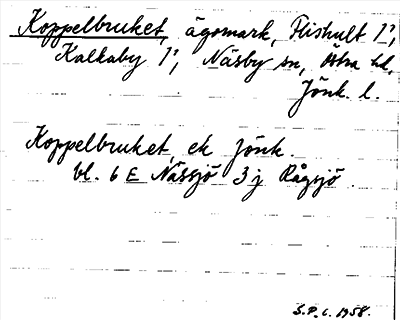 Koppelbruket, ägomark, Flishult 1:1,
Kalkaby 1:1, Näsby sn, Östra hd,
Jönk. l.
Koppelbruket ek Jönk.
bl. 6 E Nässjö 3 j Rågsjö
S.P.C. 1958.